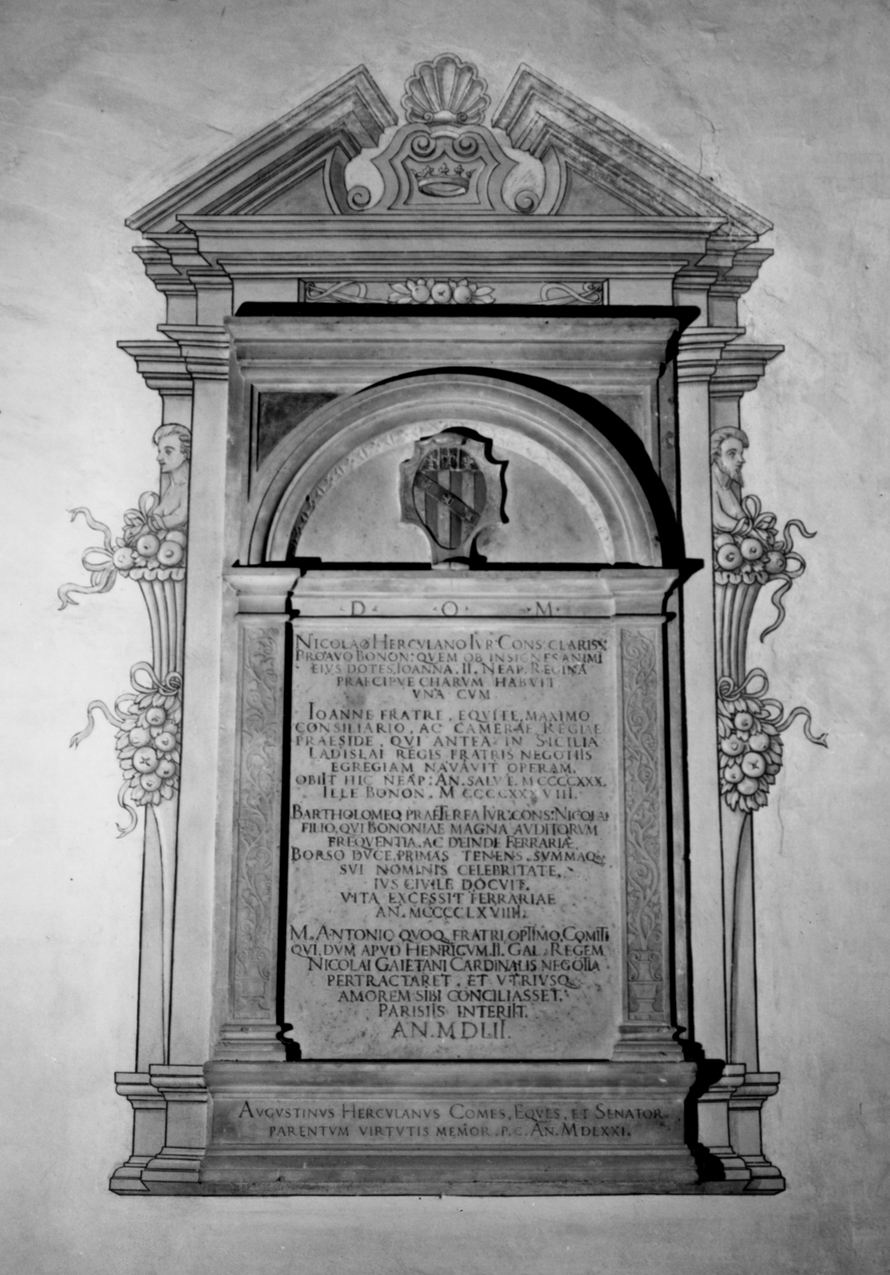 D · O · M
NICOLAO HERCVLANO IVR: CONS: CLARISS:
PROAVO BONON: QVEM OB INSIGNES ANIMI
EIVS DOTES, IOANNA, II. NEAP. REGINA
PRAECIPVE CHARVM HABVIT
VNA CVM
IOANNE FRATRE, EQVITE, MAXIMO
CONSILIARIO, AC CAMERAE REGIAE
PRAESIDE, QVI ANTEA IN SICILIA
LADISLAI REGIS FRATRIS NEGOTIIS
EGREGIAM NAVAVIT OPERAM.
OBIIT HIC NEAP: AN. SALVT. MCCCCXXX.
ILLE BONON. MCCCCXXXVIII.
BARTHOLOMEO PRAETEREA IVR: CONS: NICOLAI
FILIO, QVI BONONIAE MAGNA AVDITORVM
FREQVENTIA, AC DEINDE FERRARIÆ
BORSO DVCE, PRIMAS TENENS, SVMMAQ;
SVI NOMINIS CELEBRITATE,
IVS CIVILE DOCVIT.
VITA EXCESSIT FERRARIAE
AN. MCCCCLXVIIII.
M. ANTONIO QVOQ; FRATRI OPTIMO, COMITI
QVI, DVM APVD HENRICVM. II. GAL: REGEM
NICOLAI GAIETANI CARDINALIS NEGOTIA
PERTRACTARET, ET VTRIVSQ;
AMOREM SIBI CONCILIASSET,
PARISIIS INTERIIT.
AN. MDLII.
AVGVSTINVS HERCVLANVS COMES, EQVES, ET SENATOR
PARENTVM VIRTVTIS MEMOR. P. C. AN. MDLXXI.